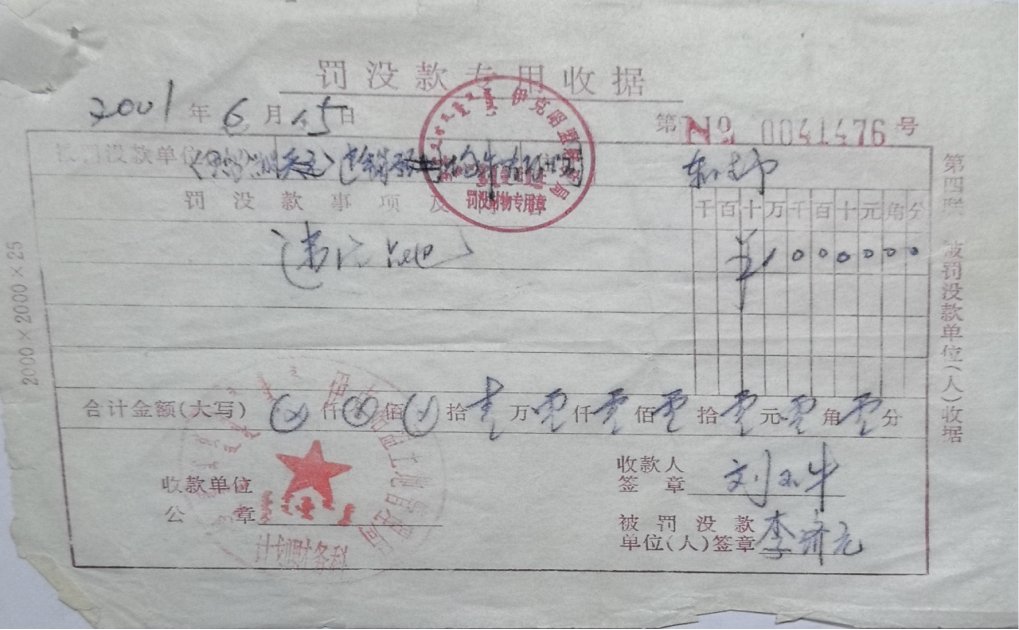 罚没款专用收据
2001年6月15日
第 No 0041476 号
被罚没款单位
罚没款事项及
千百十万千百十元角分
违法占地
¥1000000
合计金额(大写) ⊗仟⊗佰⊗拾壹万零仟零佰零拾零元零角零分
收款单位
公章
收款人
签章 刘
被罚没款
单位(人)签章 李济元
第四联 被罚没款单位(人)收据
2000×2000×25
伊克昭盟财政局
罚没财物专用章
计划财务科